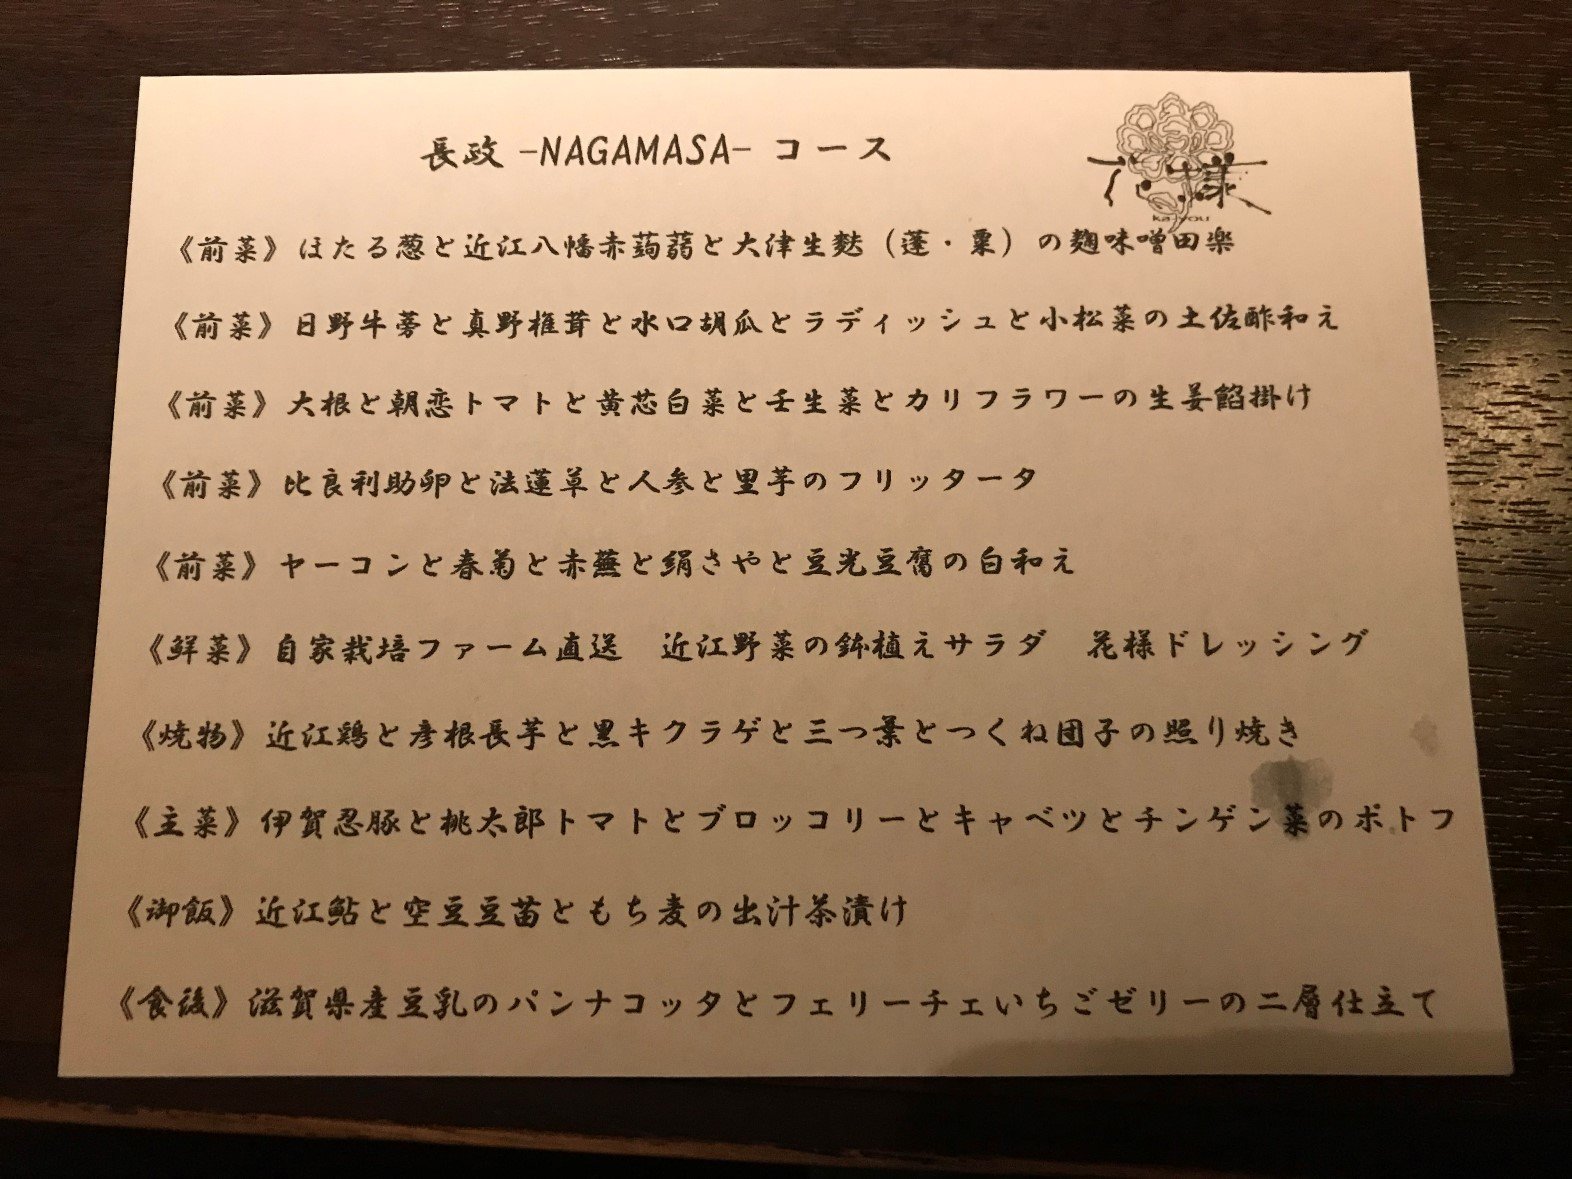 長政 -NAGAMASA- コース
花様
ka-you
《前菜》ほたる葱と近江八幡赤蒟蒻と大津生麩(蓬・粟)の麹味噌田楽
《前菜》日野牛蒡と真野椎茸と水口胡瓜とラディッシュと小松菜の土佐酢和え
《前菜》大根と朝恋トマトと黄芯白菜と壬生菜とカリフラワーの生姜餡掛け
《前菜》比良利助卵と法蓮草と人参と里芋のフリッタータ
《前菜》ヤーコンと春菊と赤蕪と絹さやと豆光豆腐の白和え
《鮮菜》自家栽培ファーム直送　近江野菜の鉢植えサラダ　花様ドレッシング
《焼物》近江鶏と彦根長芋と黒キクラゲと三つ葉とつくね団子の照り焼き
《主菜》伊賀忍豚と桃太郎トマトとブロッコリーとキャベツとチンゲン菜のポトフ
《御飯》近江鮎と空豆豆苗ともち麦の出汁茶漬け
《食後》滋賀県産豆乳のパンナコッタとフェリーチェいちごゼリーの二層仕立て